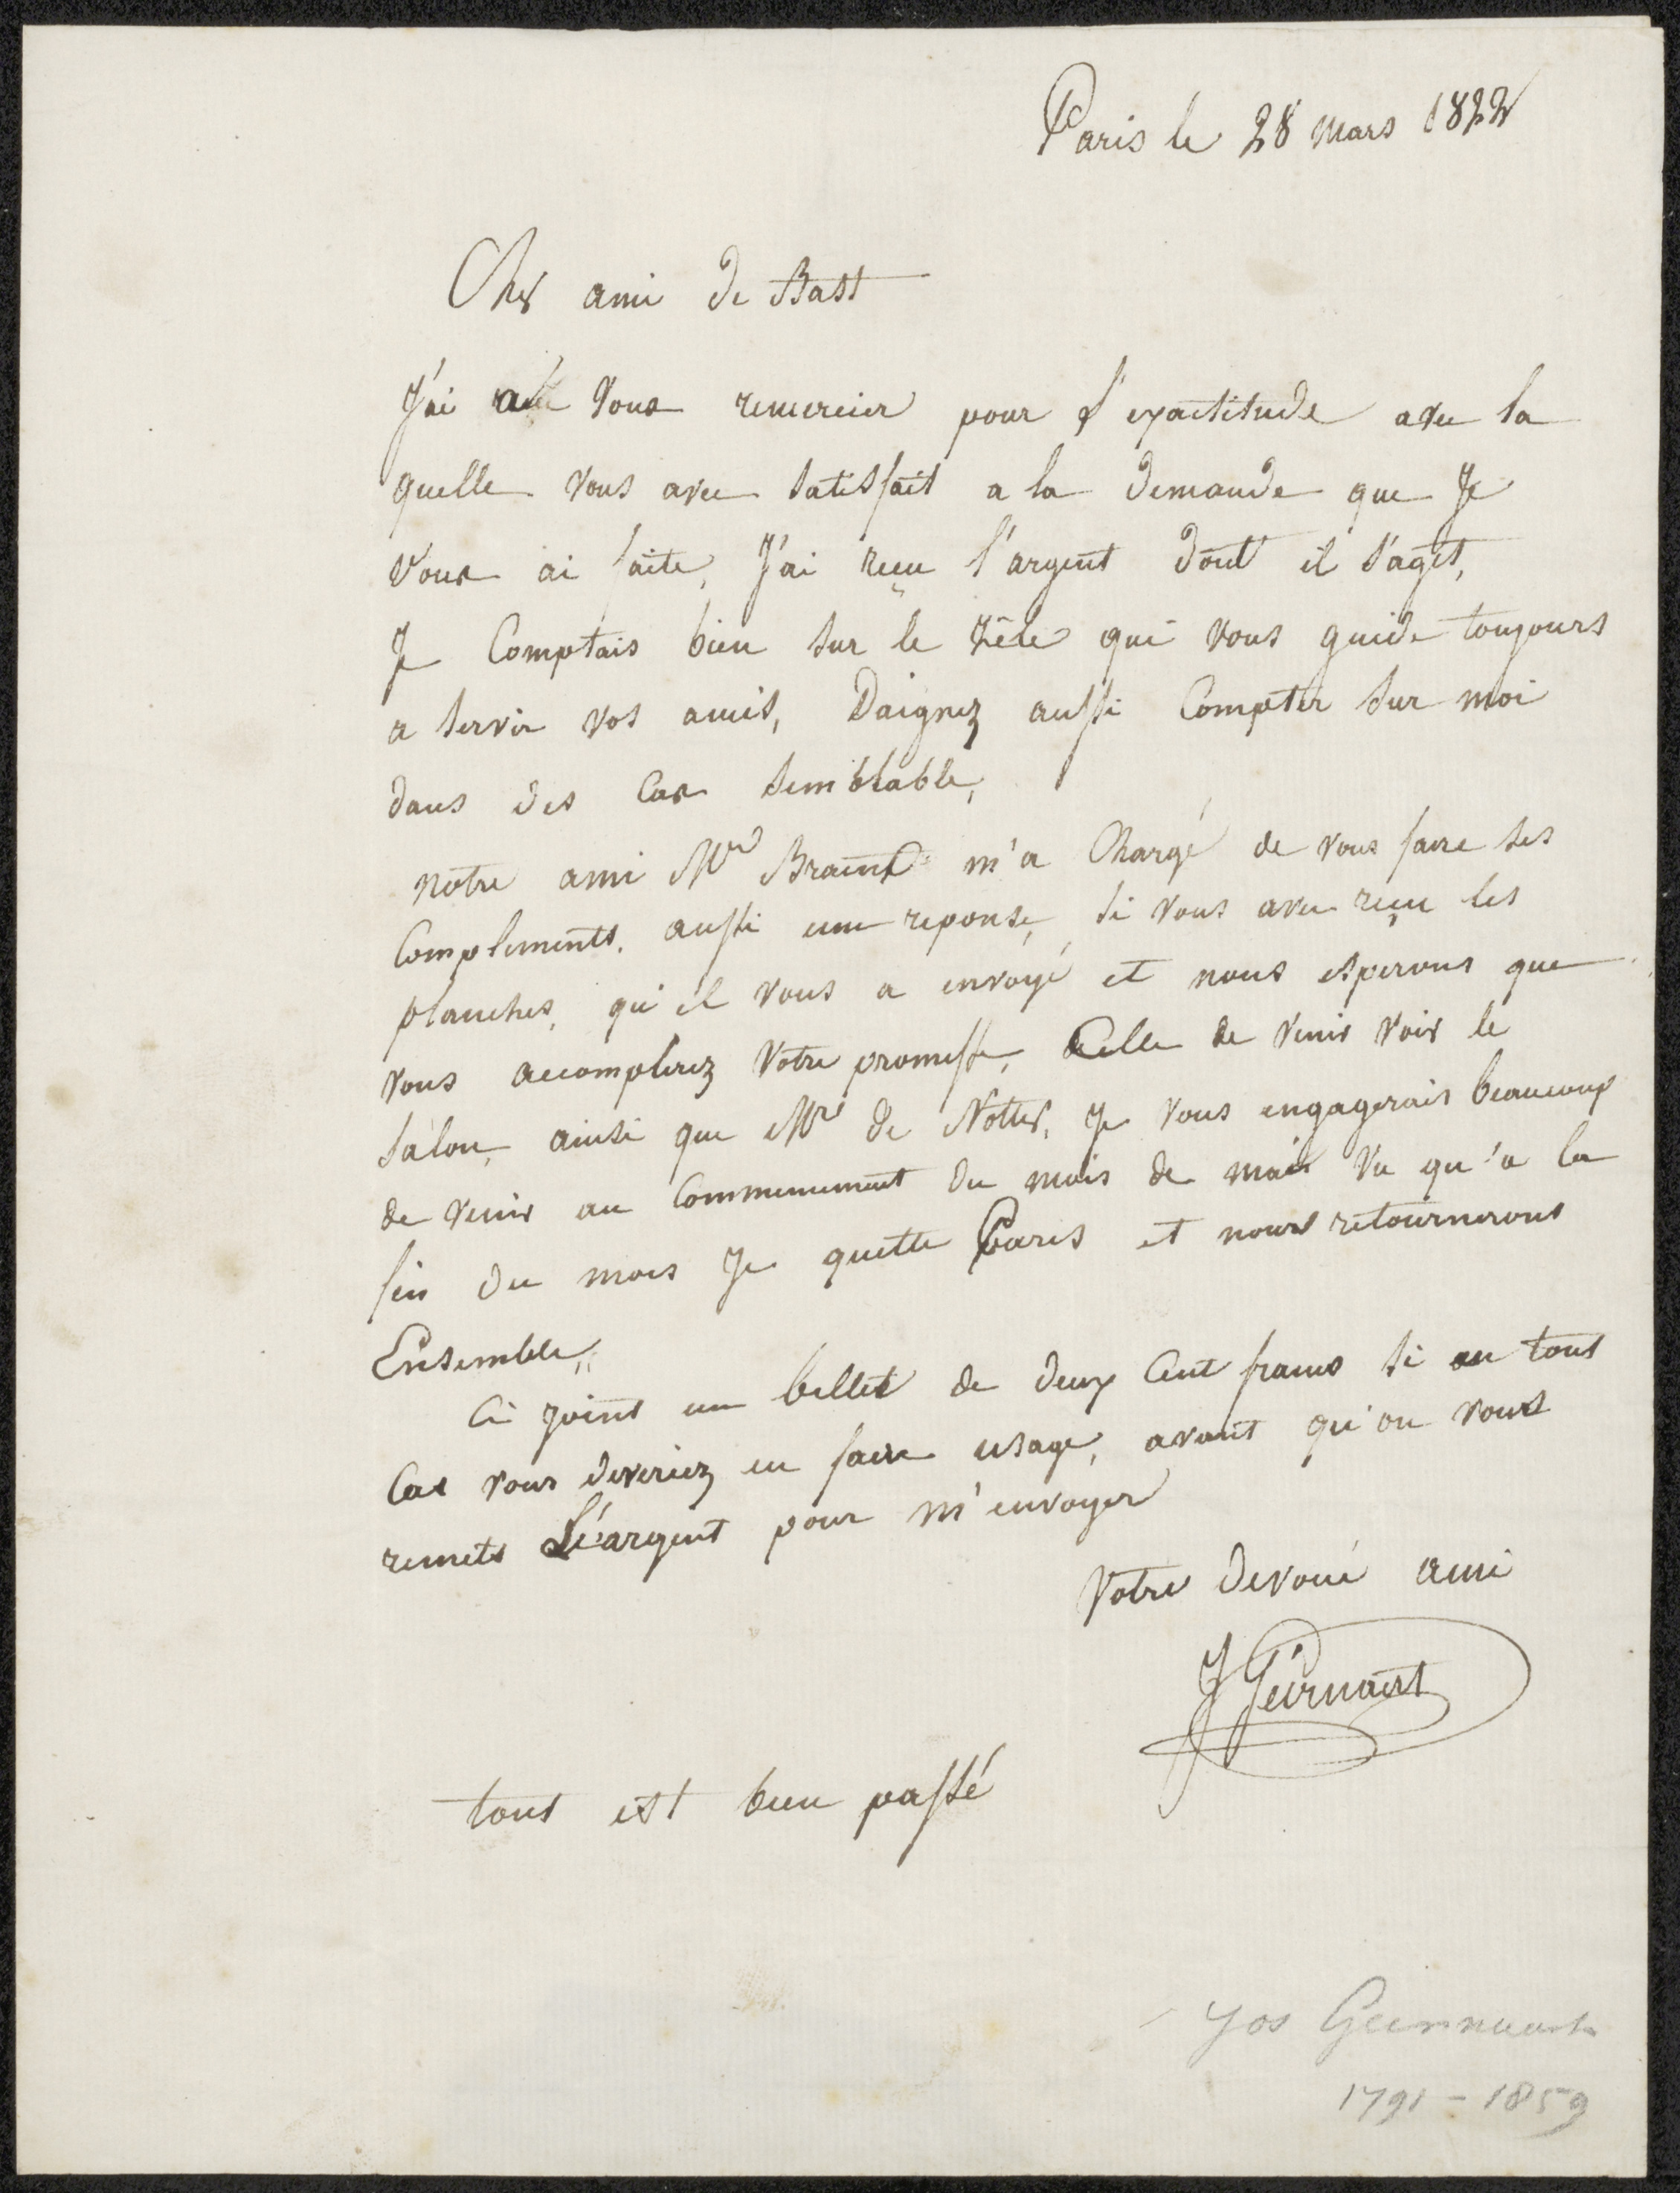 Paris le 28 mars 1822
Cher ami De Bast
J'ai a vous remercier pour l'exactitude avec la
quelle vous avec satisfait a la demande que Je
vous ai faite, J'ai reçu l'argent dont il s'agit,
Je Comptais bien sur le zêle qui vous guide toujours
a servir vos amis, Daignez aussi Compter sur moi
dans des Cas semblable,
notre ami Mr Braemt m'a Chargé de vous faire ses
Compliments, aussi une reponse, si vous avec reçu les
planches, qu'il vous a envoyé et nous esperons que
vous accomplirez votre promesse, Celle de venir voir le
salon, ainsi que Mr De Noter, Je vous engagerais beaucoup
de venir au Commencement du mois de mais vu qu'a la
fin du mois Je quitte Paris et nous retournerons
Ensemble,
Ci joint un billet de deux Cent francs si en tout
Cas vous deveriez en faire usage, avant qu'on vous
remets L'argent pour m'envoyer
votre devoué ami
J Geirnaert
tous est bien passé
Jos Geirnaert
1791 - 1859